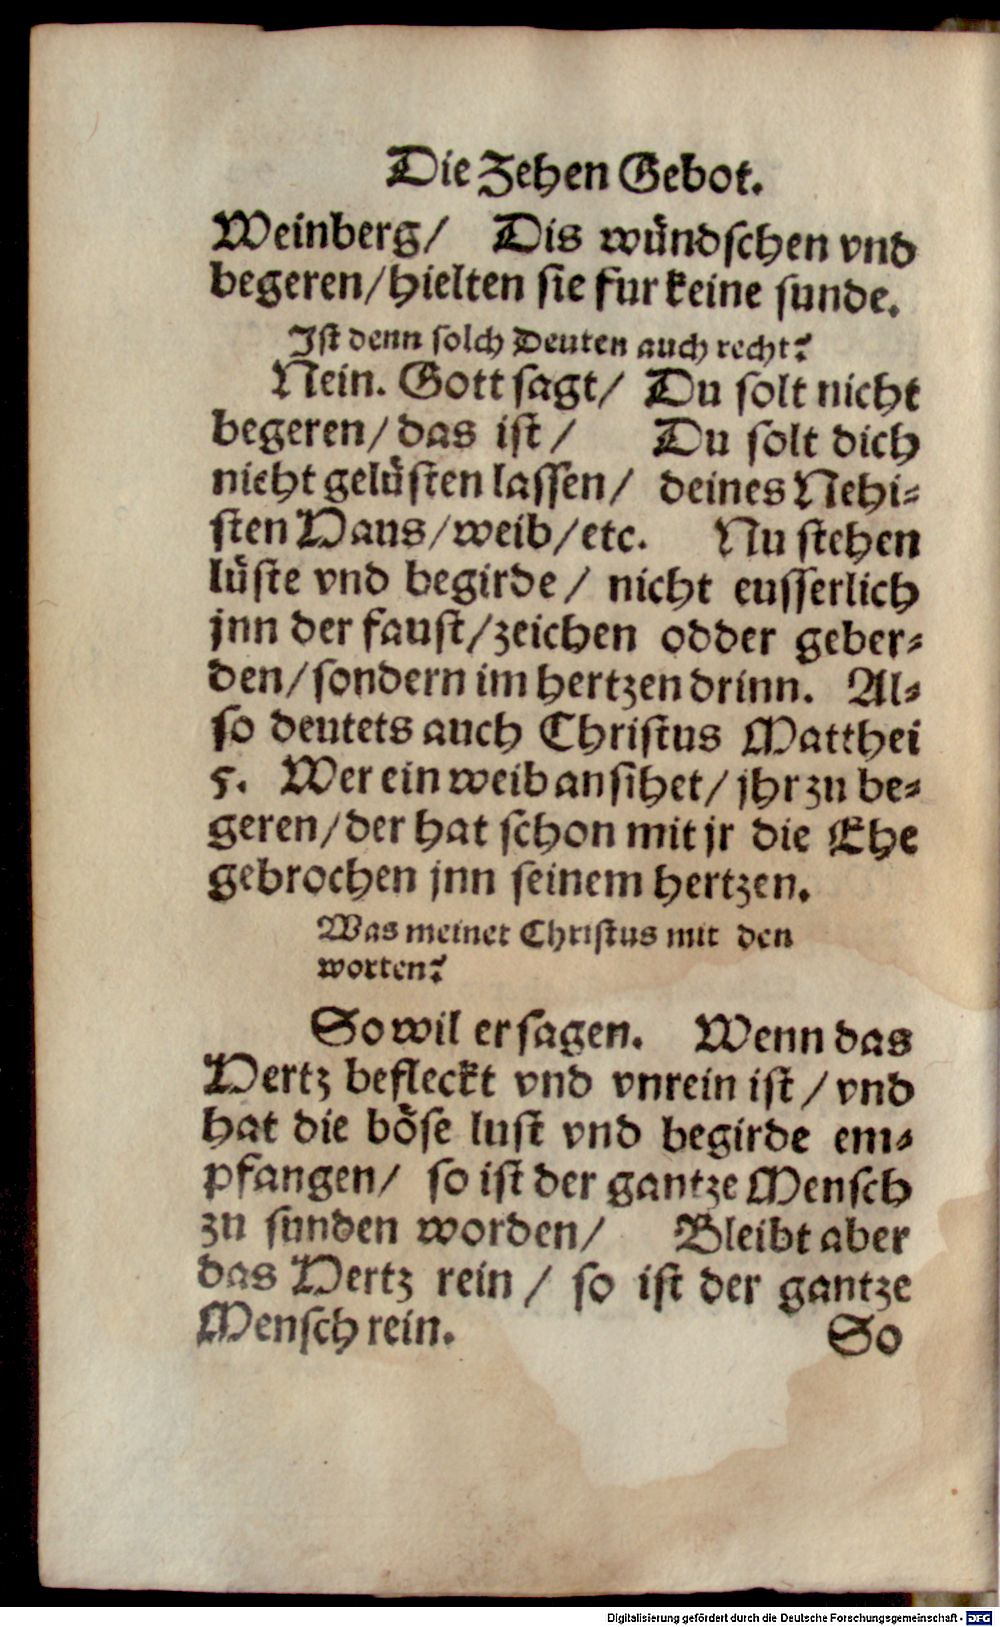 Die Zehen Gebot.
Weinberg/ Dis wündschen vnd
begeren/hielten sie fur keine sunde.
Ist denn solch Deuten auch recht?
Nein. Gott sagt/ Du solt nicht
begeren/das ist/ Du solt dich
nicht gelüsten lassen/ deines Nehi⸗
sten Haus/weib/etc. Nu stehen
lüste vnd begirde/ nicht eusserlich
jnn der faust/zeichen odder geber⸗
den/sondern im hertzen drinn. Al⸗
so deutets auch Christus Matthei
5. Wer ein weib ansihet/ jhr zu be⸗
geren/der hat schon mit jr die Ehe
gebrochen jnn seinem hertzen.
Was meinet Christus mit den
worten?
So wil er sagen. Wenn das
Hertz befleckt vnd vnrein ist/vnd
hat die böse lust vnd begirde em⸗
pfangen/ so ist der gantze Mensch
zu sunden worden/ Bleibt aber
das Hertz rein/ so ist der gantze
Mensch rein.
So
Digitalisierung gefördert durch die Deutsche Forschungsgemeinschaft - DFG